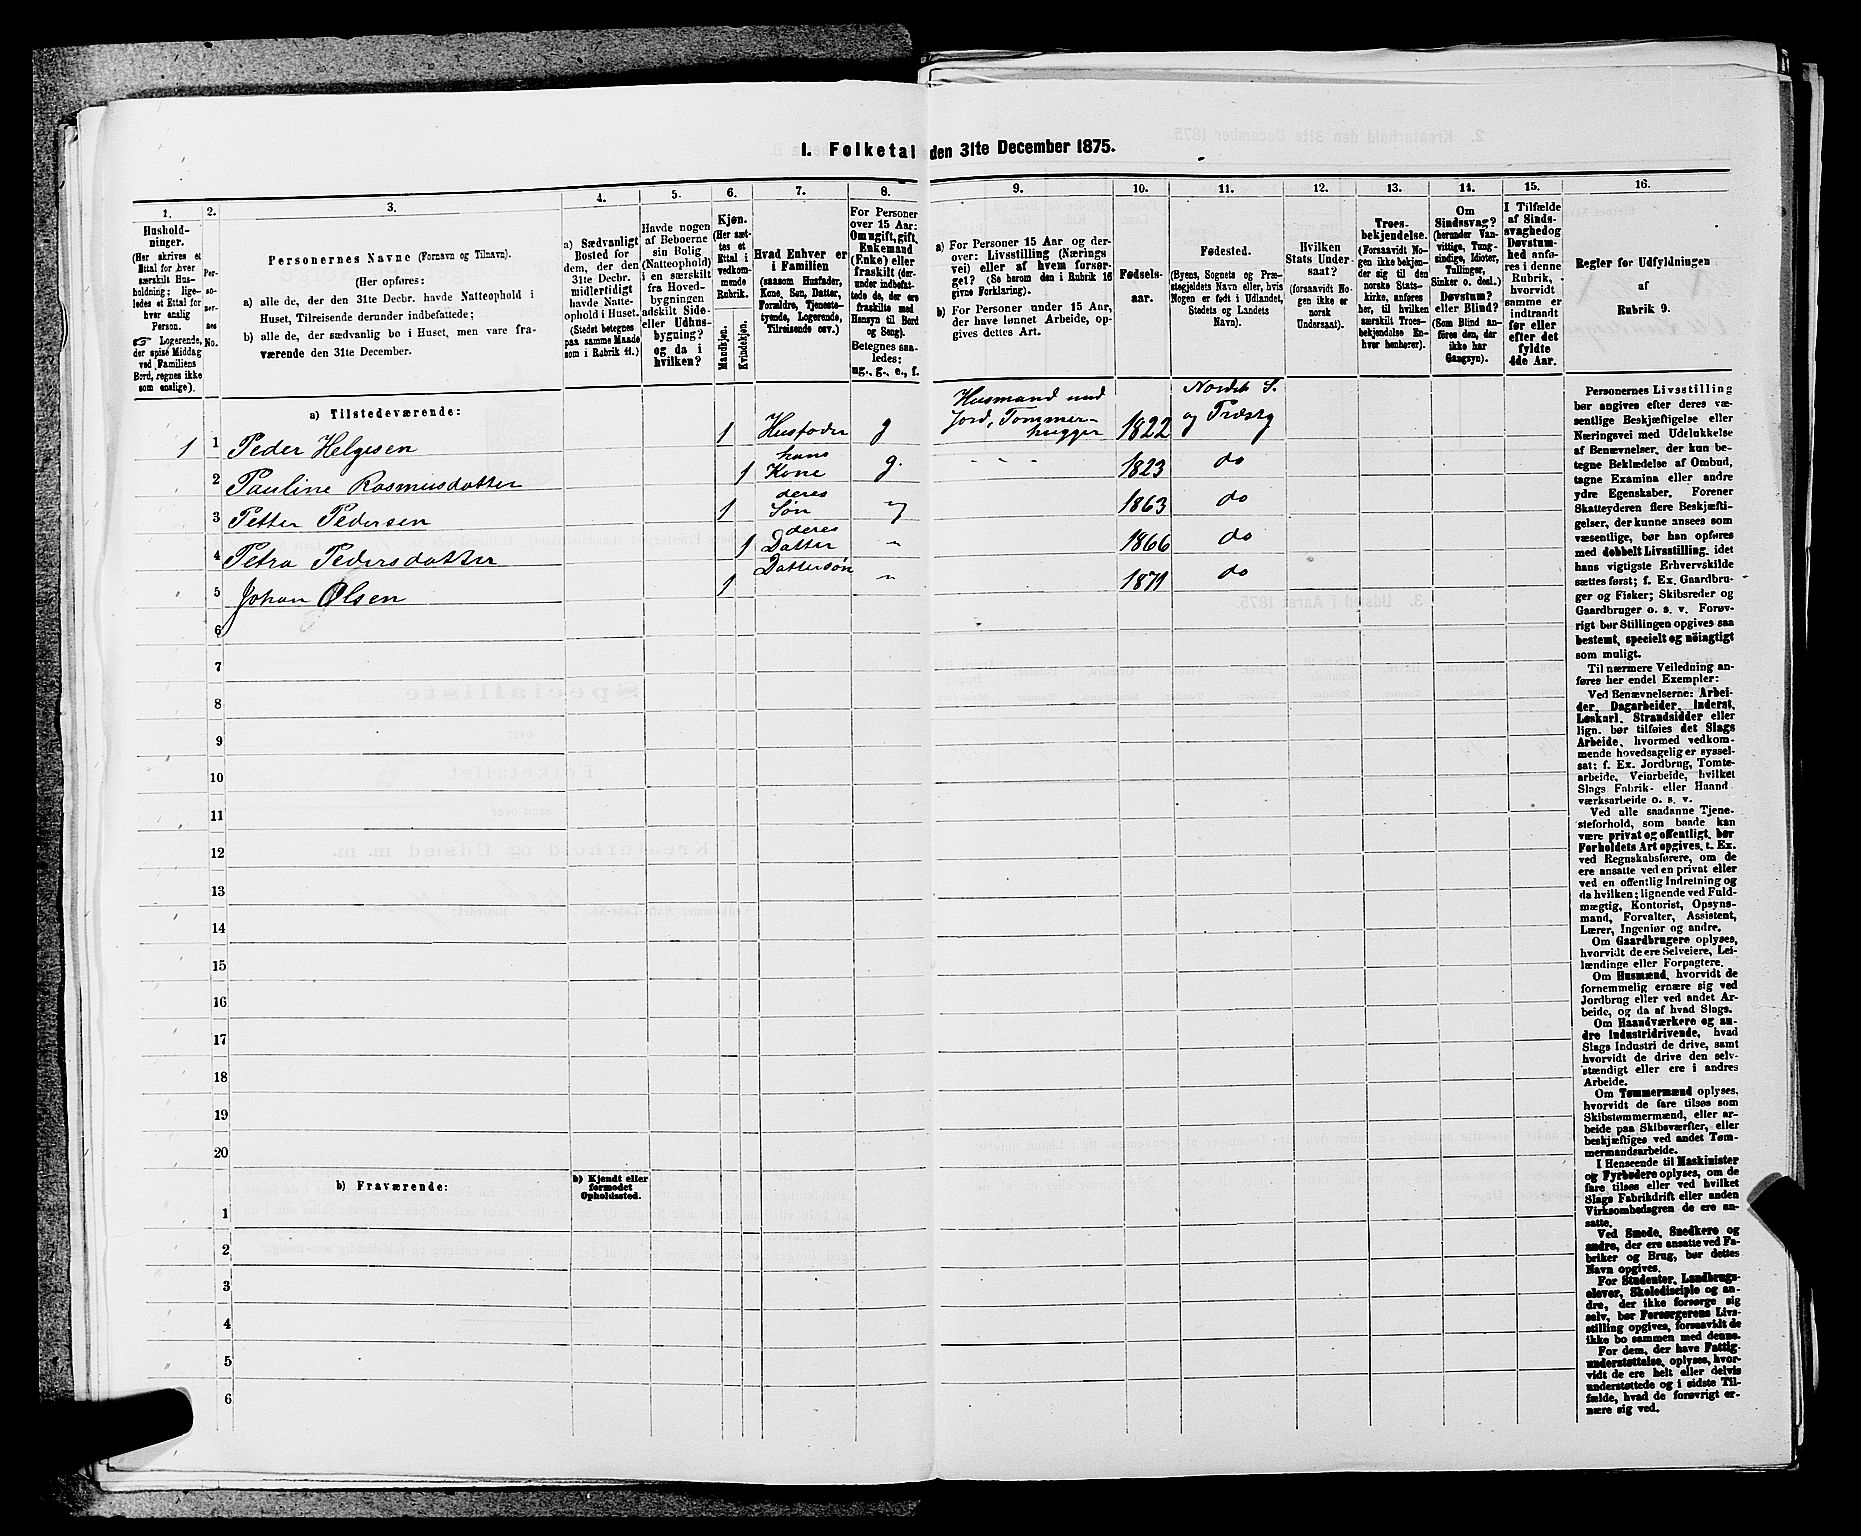 I. Folketal den 31te December 1875.
1. 2. 3. 4. 5. 6. 7. 8. 9. 10. 11. 12. 13. 14. 15. 16.
Hushold-
ninger.
(Her skrives et
Ettal for hver
særskilt Hus-
holdning; lige-
ledes et Ettal for
hver enslig
Person.
☞ Logerende,
der spise Middag
ved Familiens
Bord, regnes ikke
som enslige).
Per-
so-
ner-
nes
No.
Personernes Navne (Fornavn og Tilnavn).
(Her opføres:
a) alle de, der den 31te Decbr. havde Natteophold i
Huset, Tilreisende derunder indbefattede;
b) alle de, der sædvanlig bo i Huset, men vare fra-
værende den 31te December.
a) Sædvanligt
Bosted for
dem, der den
31te Decbr.
midlertidigt
havde Natte-
ophold i Huset.
(Stedet betegnes
paa samme Maade
som i Rubrik 11.)
Havde nogen
af Beboerne
sin Bolig
(Natteophold)
i en særskilt
fra Hoved-
bygningen
adskilt Side-
eller Udhus-
bygning?
og da i
hvilken?
Kjøn.
(Her sæt-
tes et
Ettal i
vedkom-
mende
Rubrik.
Mandkjøn.
Kvindekjøn.
Hvad Enhver er
i Familien
(saasom Husfader,
Kone, Søn, Datter,
Forældre, Tjeneste-
tyende, Logerende,
Tilreisende osv.)
For Personer
over 15 Aar:
Om ugift, gift,
Enkemand
(Enke) eller
fraskilt (der-
under indbefat-
tede de, der ere
fraskilte med
Hensyn til Bord
og Seng).
Betegnes saa-
ledes:
ug., g., e., f.
a) For Personer 15 Aar og der-
over: Livsstilling (Nærings
vei) eller af hvem forsør-
get? (Se herom den i Rubrik 16
givne Forklaring).
b) For Personer under 15 Aar,
der have lønnet Arbeide, op-
gives dettes Art.
Fødsels-
aar.
Fødested.
(Byens, Sognets og Præ-
stegjeldets Navn eller, hvis
Nogen er født i Udlandet,
Stedets og Landets
Navn).
Hvilken
Stats Under-
saat?
(forsaavidt No-
gen ikke er
norsk
Undersaat).
Troes-
bekjendelse.
(Forsaavidt No-
gen ikke bekjen-
der sig til den
norske Stats-
kirke, anføres
her, til hvilken
særskilt Troes-
bekjendelse En-
hver henhører).
Om
Sindssvag?
(herunder Van-
vittige, Tung-
sindige, Idioter,
Tullinger,
Sinker o. desl.)
Døvstum?
eller Blind?
(Som Blind an-
føres den, der
ikke har
Gangsyn).
I Tilfælde
af Sinds-
svaghed og
Døvstum-
hed anfø-
res i denne
Rubrik,
hvorvidt
samme er
indtraadt
før eller
efter det
fyldte
4de Aar.
Regler for Udfyldningen
af
Rubrik 9.
a) Tilstedeværende:
1 1 Peder Helgesen 1 Husfader g Husmand med Jord, Tømmerhugger 1822 Nordre S. og Præstg
2 Pauline Rasmusdatter 1 hans Kone g. - - - 1823 do
3 Petter Pedersen 1 deres Søn 1863 do
4 Petra Pedersdatter 1 deres Datter " 1866 do
5 Johan Olsen 1 Dattersøn " 1871 do
6
7
8
9
10
11
12
13
14
15
16
17
18
19
20
b) Fraværende:
b) Kjendt eller
formodet
Opholdssted.
1
2
3
4
5
6
Personernes Livsstilling
bør angives efter deres væ-
sentlige Beskjæftigelse eller
Næringsvei med Udelukkelse
af Benævnelser, der kun be-
tegne Beklædelse af Ombud,
tagne Examina eller andre
ydre Egenskaber. Forener
Skatteyderen flere Beskjæfti-
gelser, der kunne ansees som
væsentlige, bør han opføres
med dobbelt Livsstilling, idet
hans vigtigste Erhvervskilde
sættes først; f. Ex. Gaardbru-
ger og Fisker; Skibsreder og
Gaardbruger o. s. v. Forøv-
rigt bør Stillingen opgives saa
bestemt, specielt og nøiagtigt
som muligt.
Til nærmere Veiledning an-
føres her endel Exempler:
Ved Benævnelserne: Arbei-
der, Dagarbeider, Inderst,
Løskarl, Strandsidder eller
lign. bør tilføies det Slags
Arbeide, hvormed vedkom-
mende hovedsagelig er syssel-
sat; f. Ex. Jordbrug, Tomte-
arbeide, Veiarbeide, hvilket
Slags Fabrik- eller Haand
værksarbeide o. s. v.
Ved alle saadanne Tjene-
steforhold, som baade kan
være privat og offentligt, bør
Forholdets Art opgives, t. Ex.
ved Regnskabsførere, om de
ere ansatte ved en privat eller
ved en offentlig Indretning og
da hvilken; lignende ved Fuld-
mægtig, Kontorist, Opsyns-
mand, Forvalter, Assistent,
Lærer, Ingeniør og andre.
Om Gaardbrugere oplyses,
hvorvidt de ere Selveiere, Lei-
lændinge eller Forpagtere.
Om Husmænd, hvorvidt de
fornemmelig ernære sig ved
Jordbrug eller ved andet Ar-
beide, og da af hvad Slags.
Om Haandværkere og an-
dre Industridrivende, hvad
Slags Industri de drive, samt
hvorvidt de drive den selv-
stændigt eller ere i andres
Arbeide.
Om Tømmermænd oplyses,
hvorvidt de fare tilsøs som
Skibstømmermænd, eller ar-
beide paa Skibsværfter, eller
beskjæftiges ved andet Tøm-
mermandsarbeide.
I Henseende til Maskinister
og Fyrbødere oplyses, om de
fare tilsøs eller ved hvilket
Slags Fabrikdrift eller anden
Virksomhedsgren de ere an-
satte.
Ved Smede, Snedkere og
andre, der ere ansatte ved Fa-
briker og Brug, bør dettes
Navn opgives.
For Studenter, Landbrugs-
elever, Skoledisciple og an-
dre, der ikke forsørge sig
selv, bør Forsørgerens Livs-
stilling opgives, forsaavidt de
ikke bo sammen med denne.
For dem, der have Fattig-
understøttelse, oplyses, hvor-
vidt de ere helt eller delvis
understøttede og i sidste Til-
fælde, hvad de forøvrigt er-
nære sig ved.